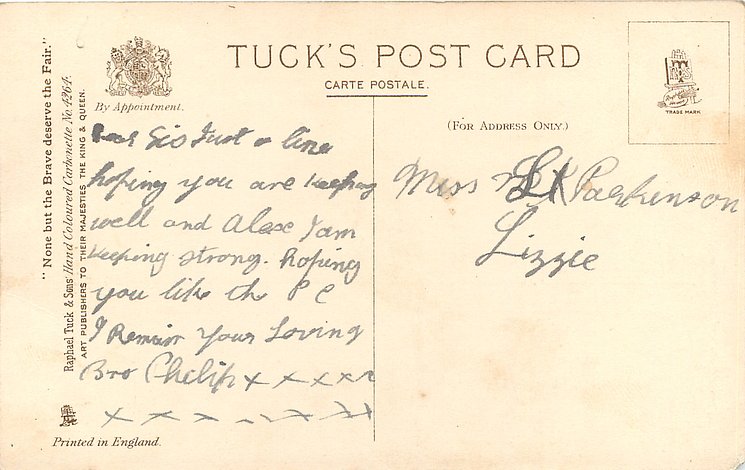 "None but the Brave deserve the Fair."
Raphael Tuck & Sons' Hand Coloured Carbonette No. 4264.
ART PUBLISHERS TO THEIR MAJESTIES THE KING & QUEEN.
By Appointment.
TUCK'S POST CARD
CARTE POSTALE.
(FOR ADDRESS ONLY.)
TRADE MARK
Sis Just a line
hoping you are Keeping
well and Alexe I am
Keeping strong. hoping
you like the P C
I Remain Your Loving
Bro Philip x x x x x
x x x x x x x
Miss L Parkinson
Lizzie
Printed in England.